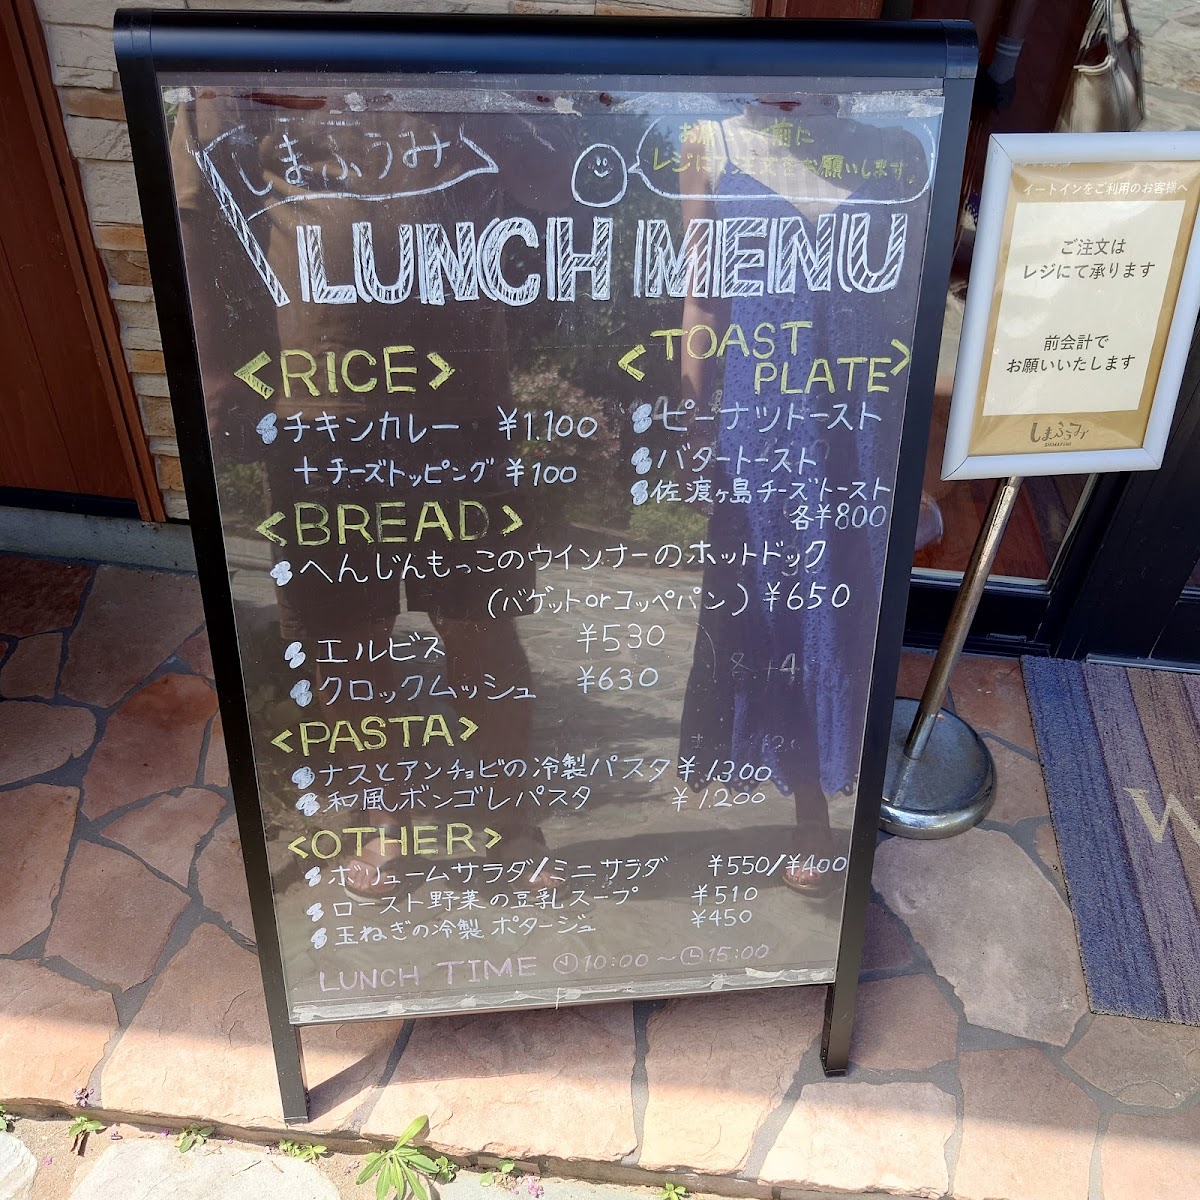 しまふうみ
お席 前に
レジにて注文をお願いします。
LUNCH MENU
<RICE>
チキンカレー ¥1.100
+チーズトッピング ¥100
<TOAST
PLATE>
ピーナツトースト
バタートースト
佐渡ヶ島チーズトースト
各¥800
<BREAD>
へんじんもっこのウインナーのホットドック
(バゲットorコッペパン) ¥650
エルビス ¥530
クロックムッシュ ¥630
<PASTA>
ナスとアンチョビの冷製パスタ ¥1.300
和風ボンゴレパスタ ¥1.200
<OTHER>
ボリュームサラダ/ミニサラダ ¥550/¥400
ロースト野菜の豆乳スープ ¥510
玉ねぎの冷製ポタージュ ¥450
LUNCH TIME 10:00~15:00
イートインをご利用のお客様へ
ご注文は
レジにて承ります
前会計で
お願いいたします
しまふうみ
SHIMAFUMI
W